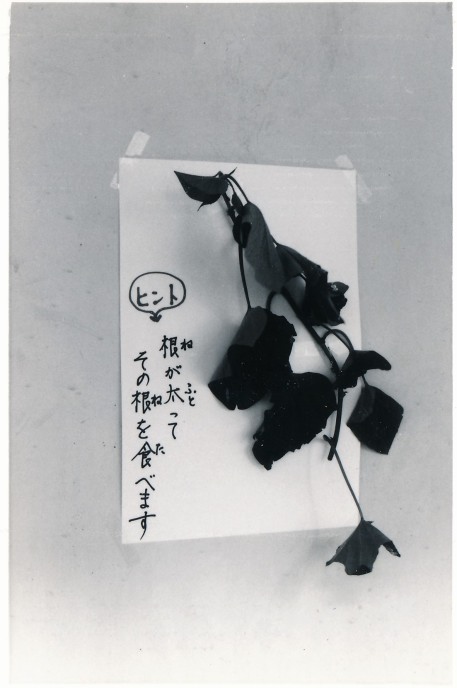 ヒント
根が太って
その根を食べます